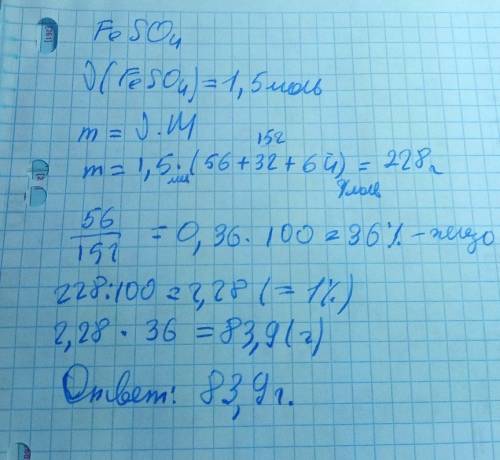 FeSO₄
ν(FeSO₄) = 1,5 моль
m = ν · M
152
m = 1,5 моль · (56 + 32 + 64) = 228 г
г/моль
56/152 = 0,36 · 100 = 36% - железо
228 : 100 = 2,28 (= 1%)
2,28 · 36 = 83,9 (г)
Ответ: 83,9 г.